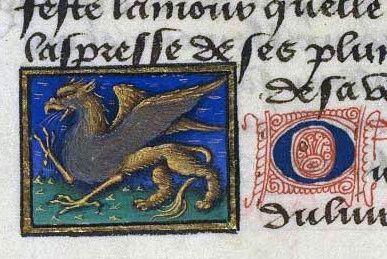 feste lamour quelle
laspresse de ses plu
de sa
O
du lui